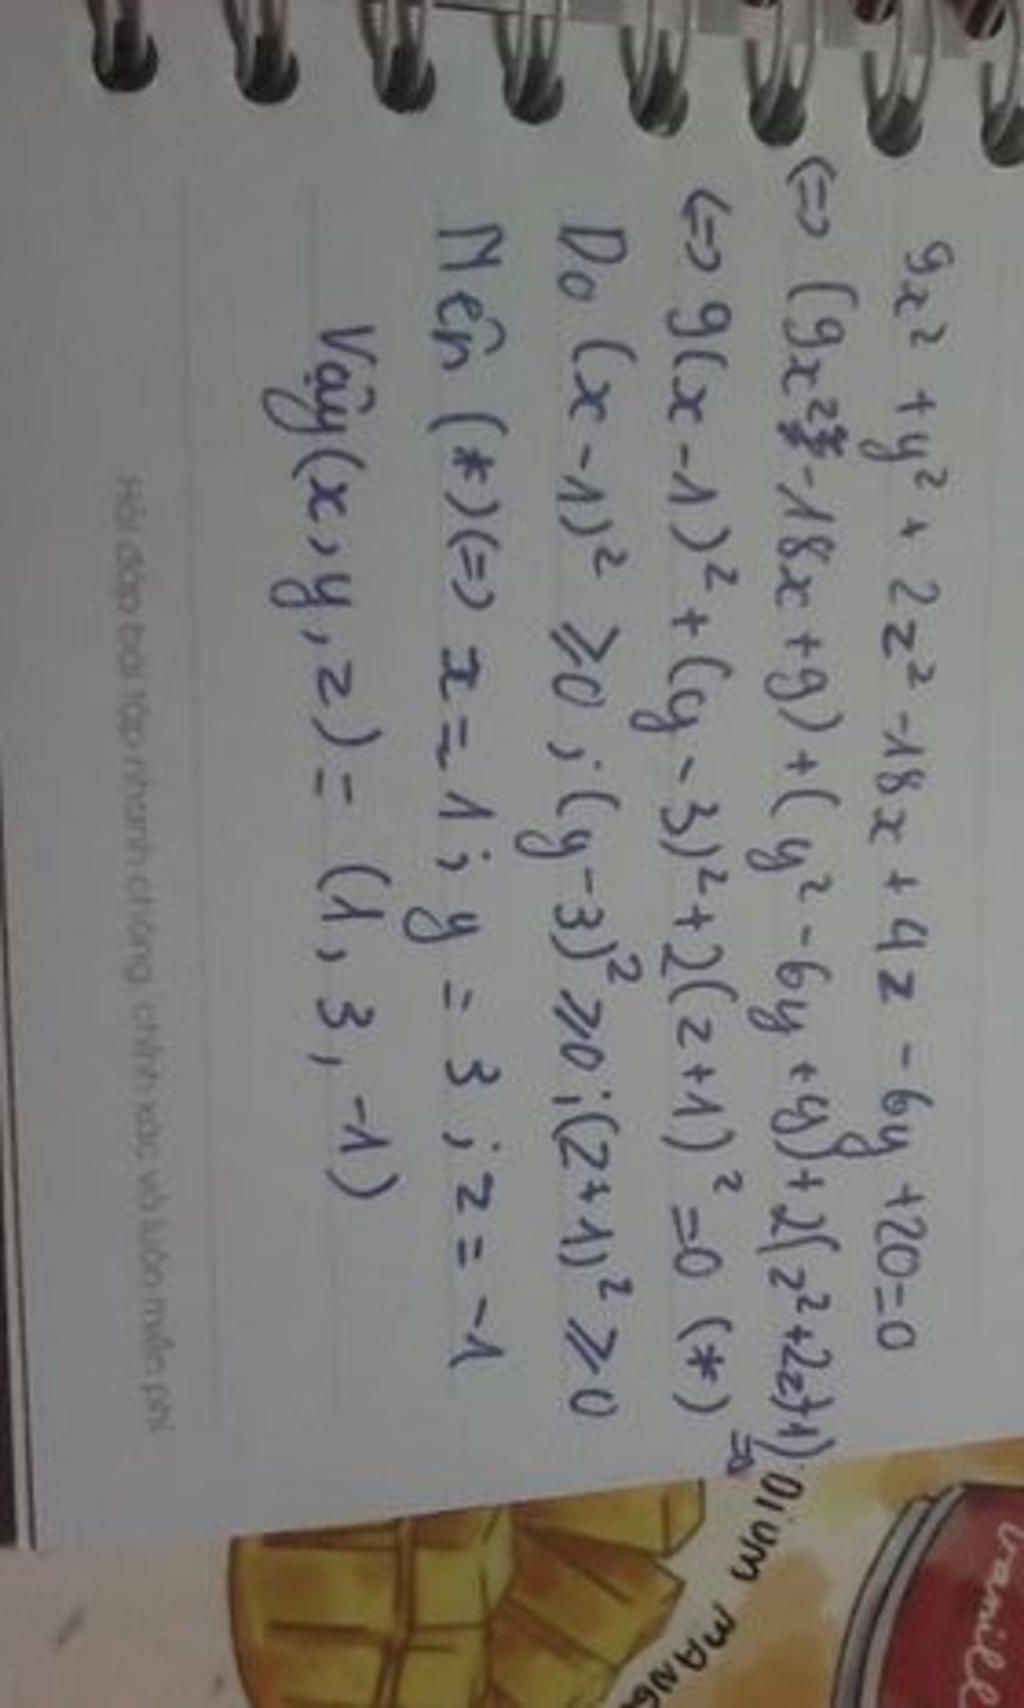 9x² + y² + 2z² - 18x + 4z - 6y + 20 = 0
<=> (9x² - 18x + 9) + (y² - 6y + 9) + 2(z² + 2z + 1) = 0
<=> 9(x - 1)² + (y - 3)² + 2(z + 1)² = 0 (*)
Do (x - 1)² ⩾ 0 ; (y - 3)² ⩾ 0 ; (z + 1)² ⩾ 0
Nên (*) <=> x = 1 ; y = 3 ; z = -1
Vậy (x, y, z) = (1, 3, -1)
Hỏi đáp bài tập nhanh chóng, chính xác và luôn miễn phí